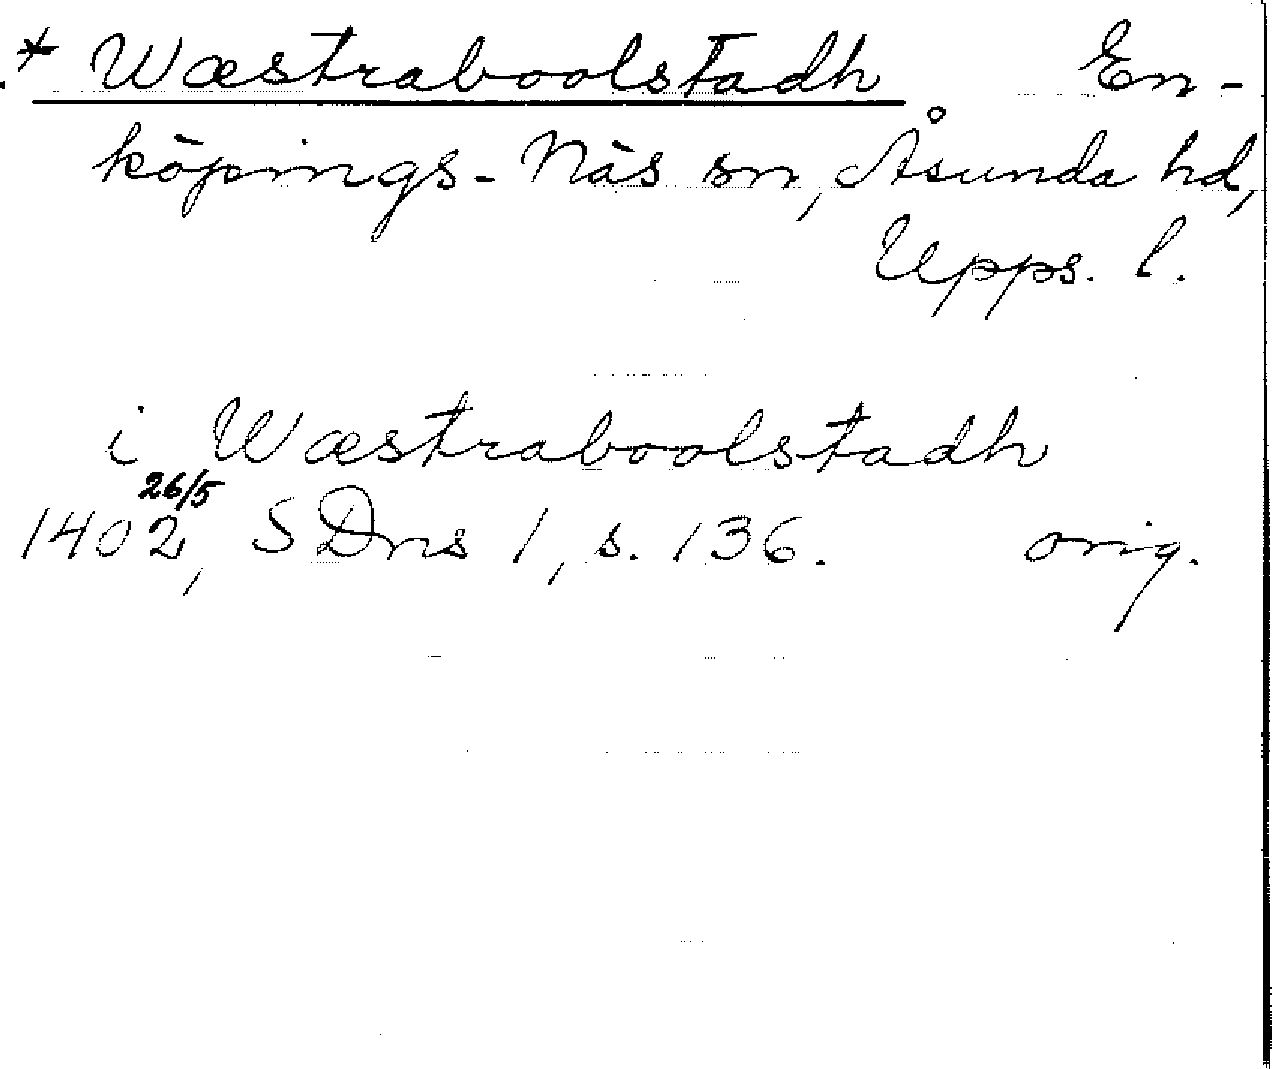 * Wæstraboolstadh En-
köpings-Näs sn, Åsunda hd,
Upps. l.
i Wæstraboolstadh
26/5
1402, SDns 1, s. 136. orig.